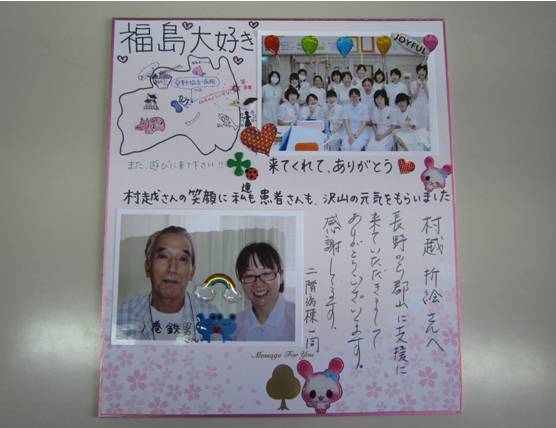 福島大好き
JOYFUL
また、遊びに来て下さい!!
来てくれて、ありがとう
村越さんの笑顔に私達も患者さんも、沢山の元気をもらいました
村越 折絵さんへ
長野から郡山に支援に
来ていただきまして
ありがとうございます。
感謝してます。
二階病棟一同
巻 鉄男
Message For You